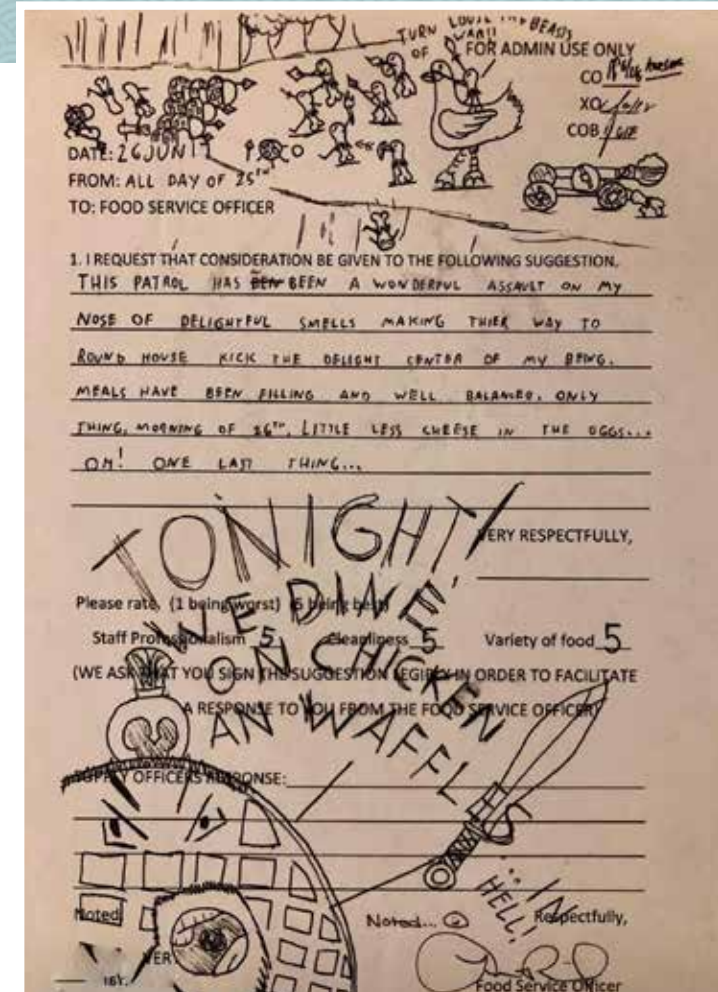 TURN LOOSE THE BEASTS
OF WAR!!
FOR ADMIN USE ONLY
CO Awesome
XO
COB
DATE: 26 JUN
FROM: ALL DAY OF 25TH
TO: FOOD SERVICE OFFICER
1. I REQUEST THAT CONSIDERATION BE GIVEN TO THE FOLLOWING SUGGESTION.
THIS PATROL HAS BEEN A WONDERFUL ASSAULT ON MY
NOSE OF DELIGHTFUL SMELLS MAKING THIER WAY TO
ROUND HOUSE KICK THE DELIGHT CENTER OF MY BEING.
MEALS HAVE BEEN FILLING AND WELL BALANCED, ONLY
THING, MORNING OF 26TH, LITTLE LESS CHEESE IN THE OGGS...
OH! ONE LAST THING...
TONIGHT
VERY RESPECTFULLY,
WE DINE
Please rate, (1 being worst) (5 being best)
Staff Professionalism 5 Cleanliness 5 Variety of food 5
ON CHICKEN
(WE ASK THAT YOU SIGN THE SUGGESTION LEGIBLY IN ORDER TO FACILITATE
A RESPONSE TO YOU FROM THE FOOD SERVICE OFFICER)
AN WAFFLES
SUPPLY OFFICERS RESPONSE:
...IN
HELL!
Noted Noted... Respectfully,
VER
Food Service Officer